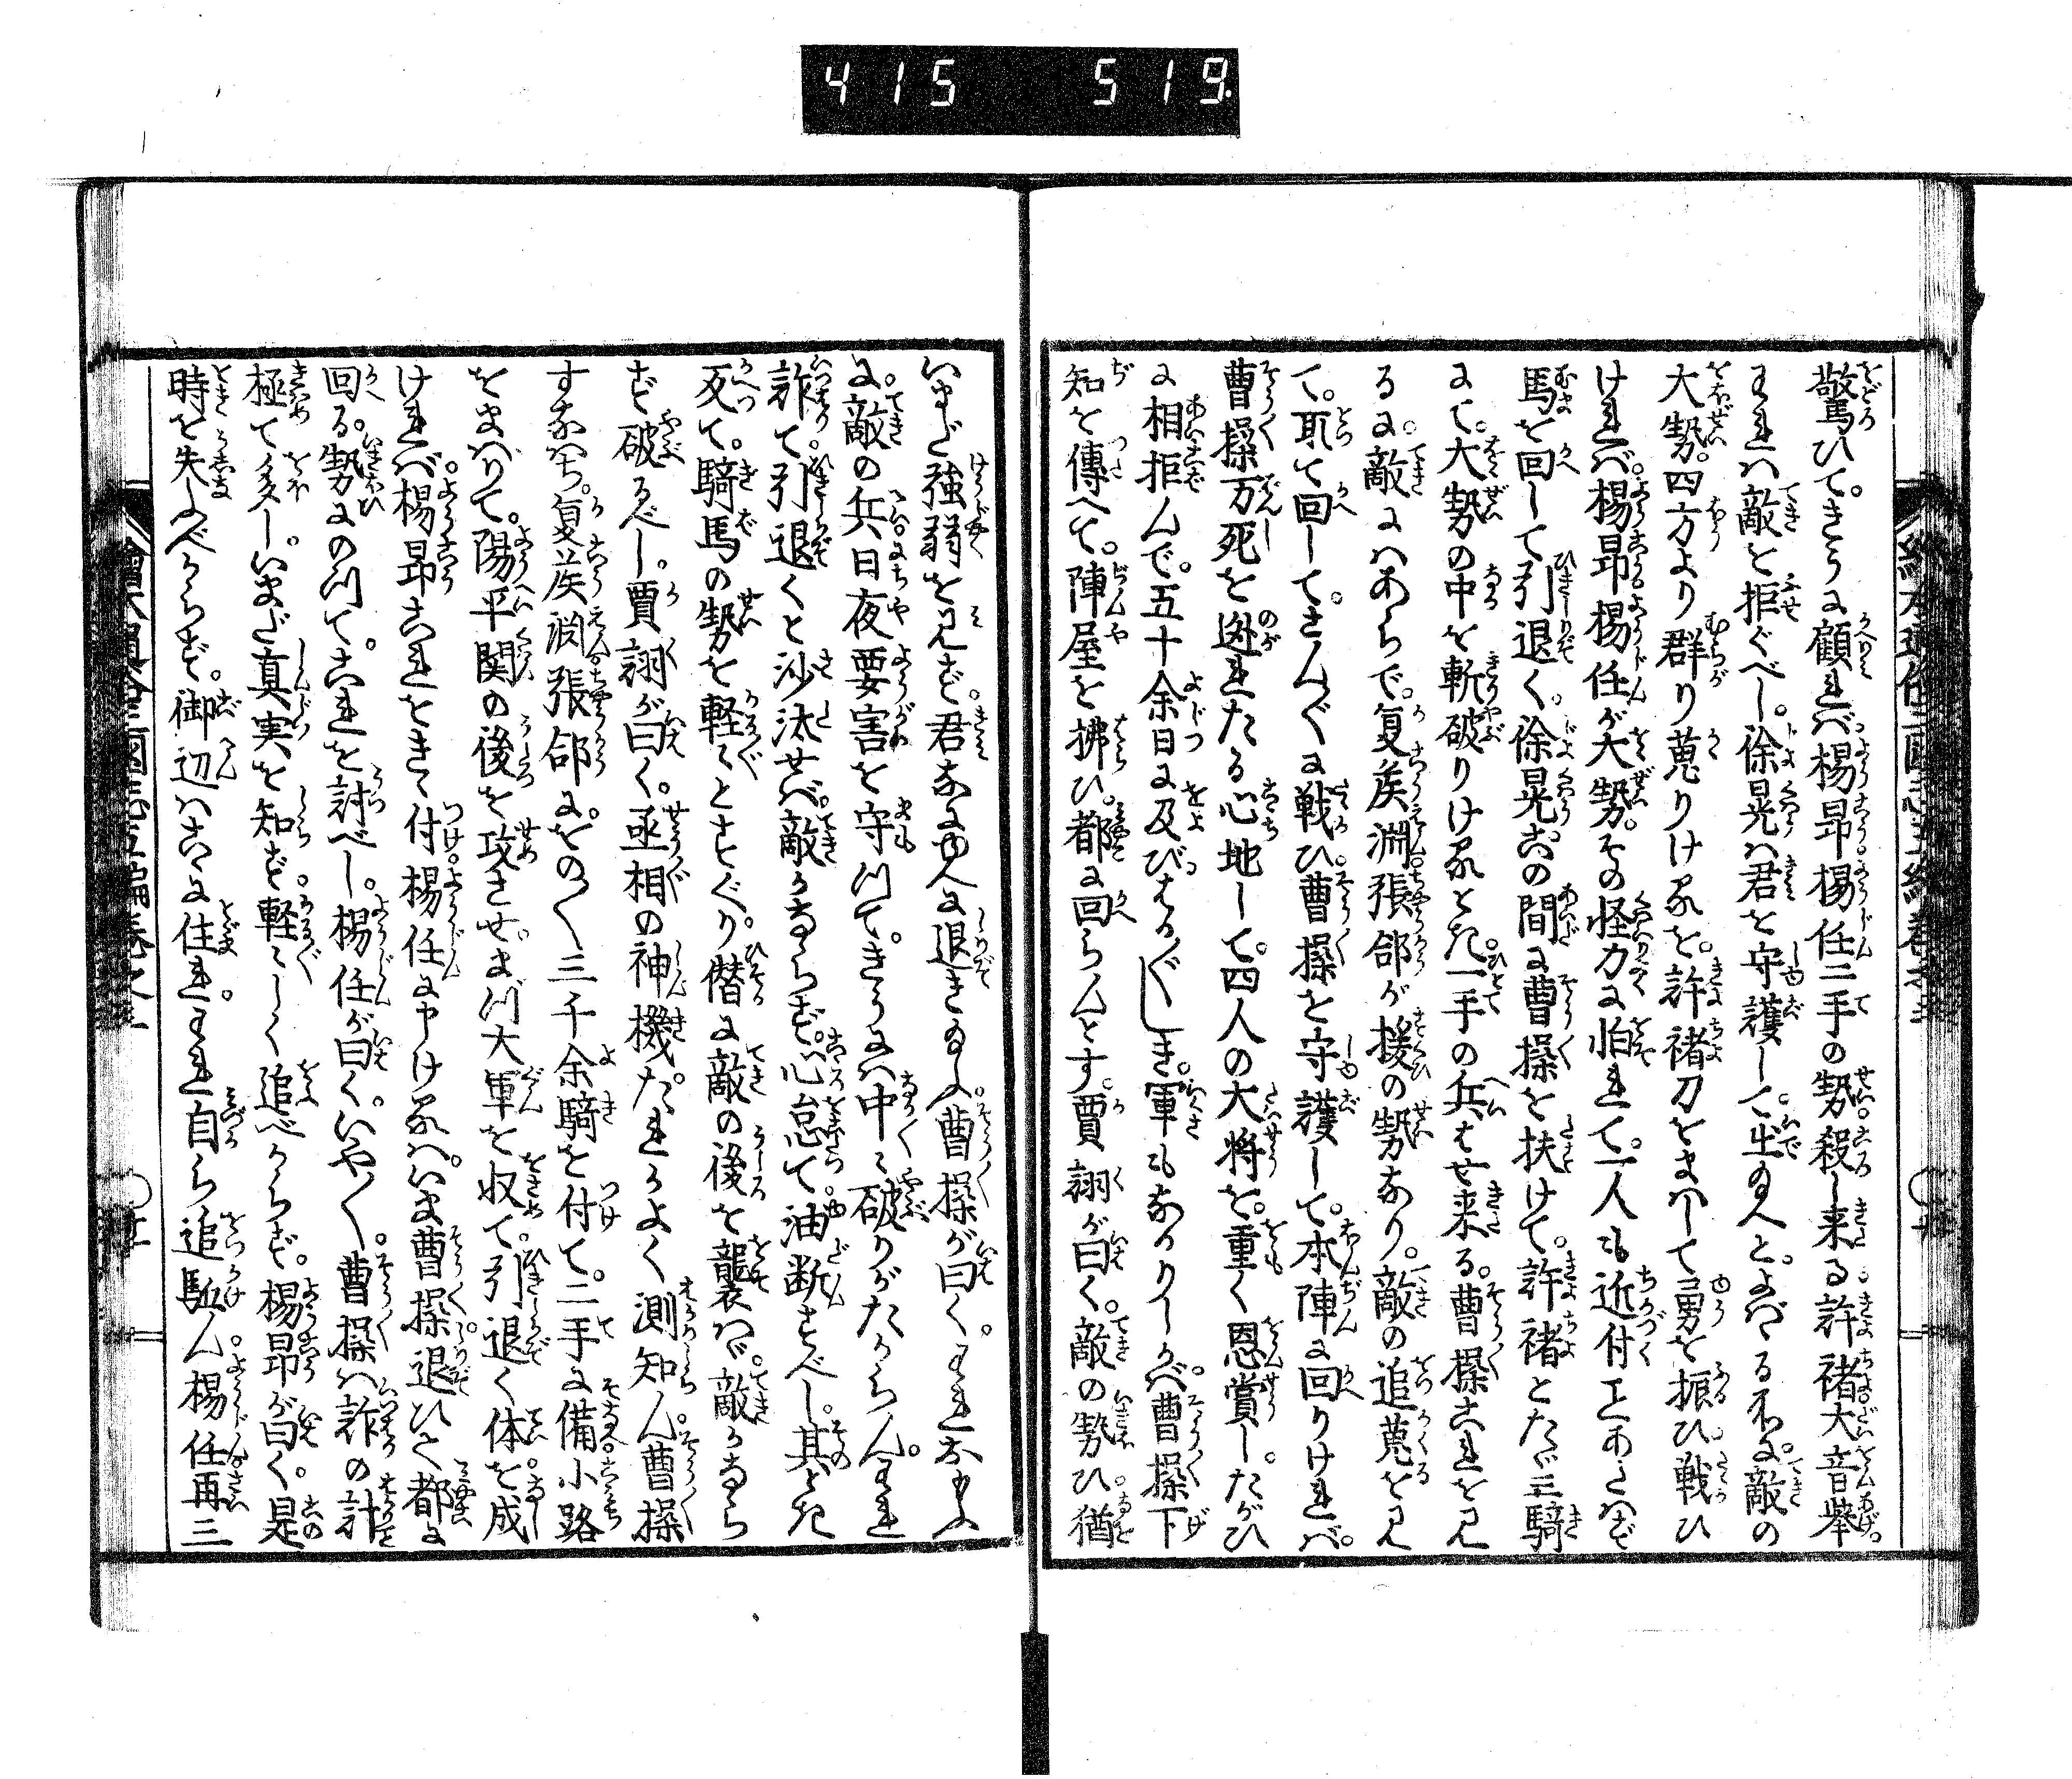 415 519
驚ひて。きうに顧れば楊昂楊任二手の勢。殺し来る。許禇大音挙。
われハ敵を拒ぐべし。徐晃ハ君を守護して。出玉へと。よばる所に。敵の
大勢。四方より群り蒐りける を。許禇刀をまハして勇を振ひ。戦ひ
ければ。楊昂楊任が大勢。その怪力に怕れて。一人も近付エあたハず
馬を回して引退く。徐晃この間に曹操を扶けて。許禇とたゞ三騎
にて。大勢の中を斬破りけるとき。一手の兵はせ来る。曹操これを見
るに。敵にハあらで。夏矦淵。張郃が援の勢なり。敵の追蒐を見
て。取て回して。さんざんに戦ひ。曹操を守護して。本陣に回りければ。
曹操万死を迯れたる心地して。四人の大将を。重く恩賞し。たがひ
に相拒んで。五十余日に及びはるかども。軍もなかりしかバ。曹操下
知を傳へて。陣屋を拂ひ。都に回らんとす。賈詡が曰く。敵の勢ひ。猶
いまだ強弱を見ず。君なにゆへに退き玉ふ。曹操が曰く。われおもふ
に。敵の兵日夜要害を守つて。きうにハ中々破りがたからん。われ
詐て。引退くと沙汰せバ。敵かならず。心怠て。油断すべし。其とき
反て。騎馬の勢を軽々とすぐり。僣に敵の後を襲ハゞ。敵かなら
ず破るべし。賈詡が曰く。丞相の神機。たれかよく測知ん。曹操
すなハち。夏矦淵。張郃に。をのをの三千余騎を付て。二手に備。小路
をまハりて。陽平関の後を攻させ。まづ大軍を収て。引退く体を成
ければ。楊昂これをきゝ付。楊任に申けるハ。いま曹操。退ひて都に
回る。勢にのつて。これを討べし。楊任が曰く。いやいや。曹操ハ詐の計
極て多し。いまだ真実を知ず。軽々しく追べからず。楊昂が曰く。是
時を失ふべからず。御辺ハこゝに住れ。われ自ら追駈ん。楊任再三